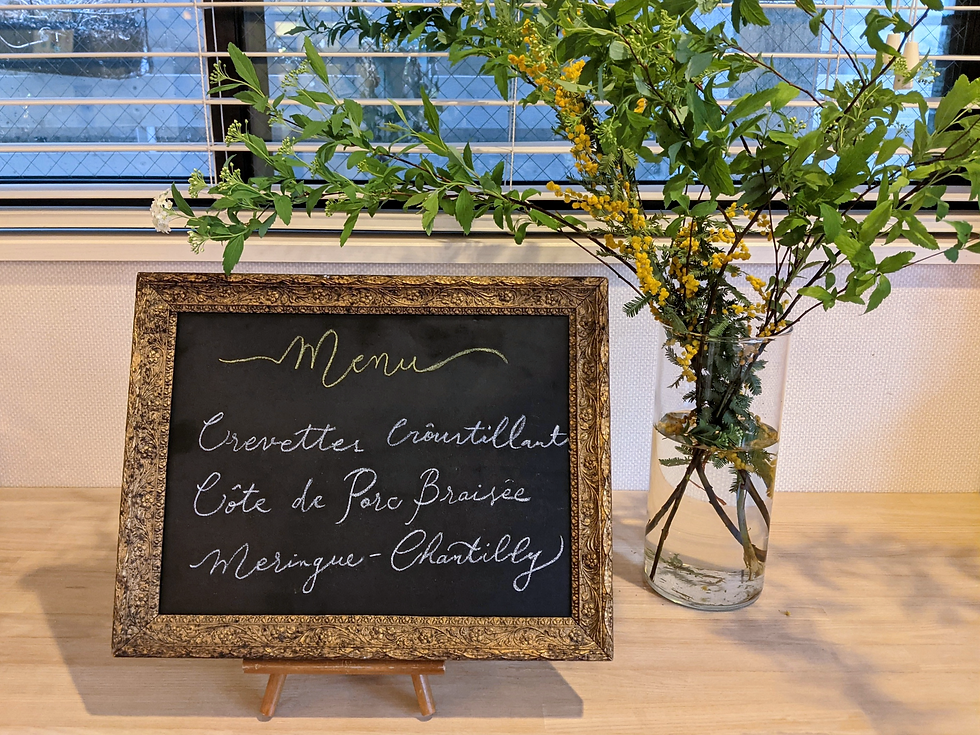 Menu
Crevettes Croûstillant
Côte de Porc Braisée
Meringue-Chantilly